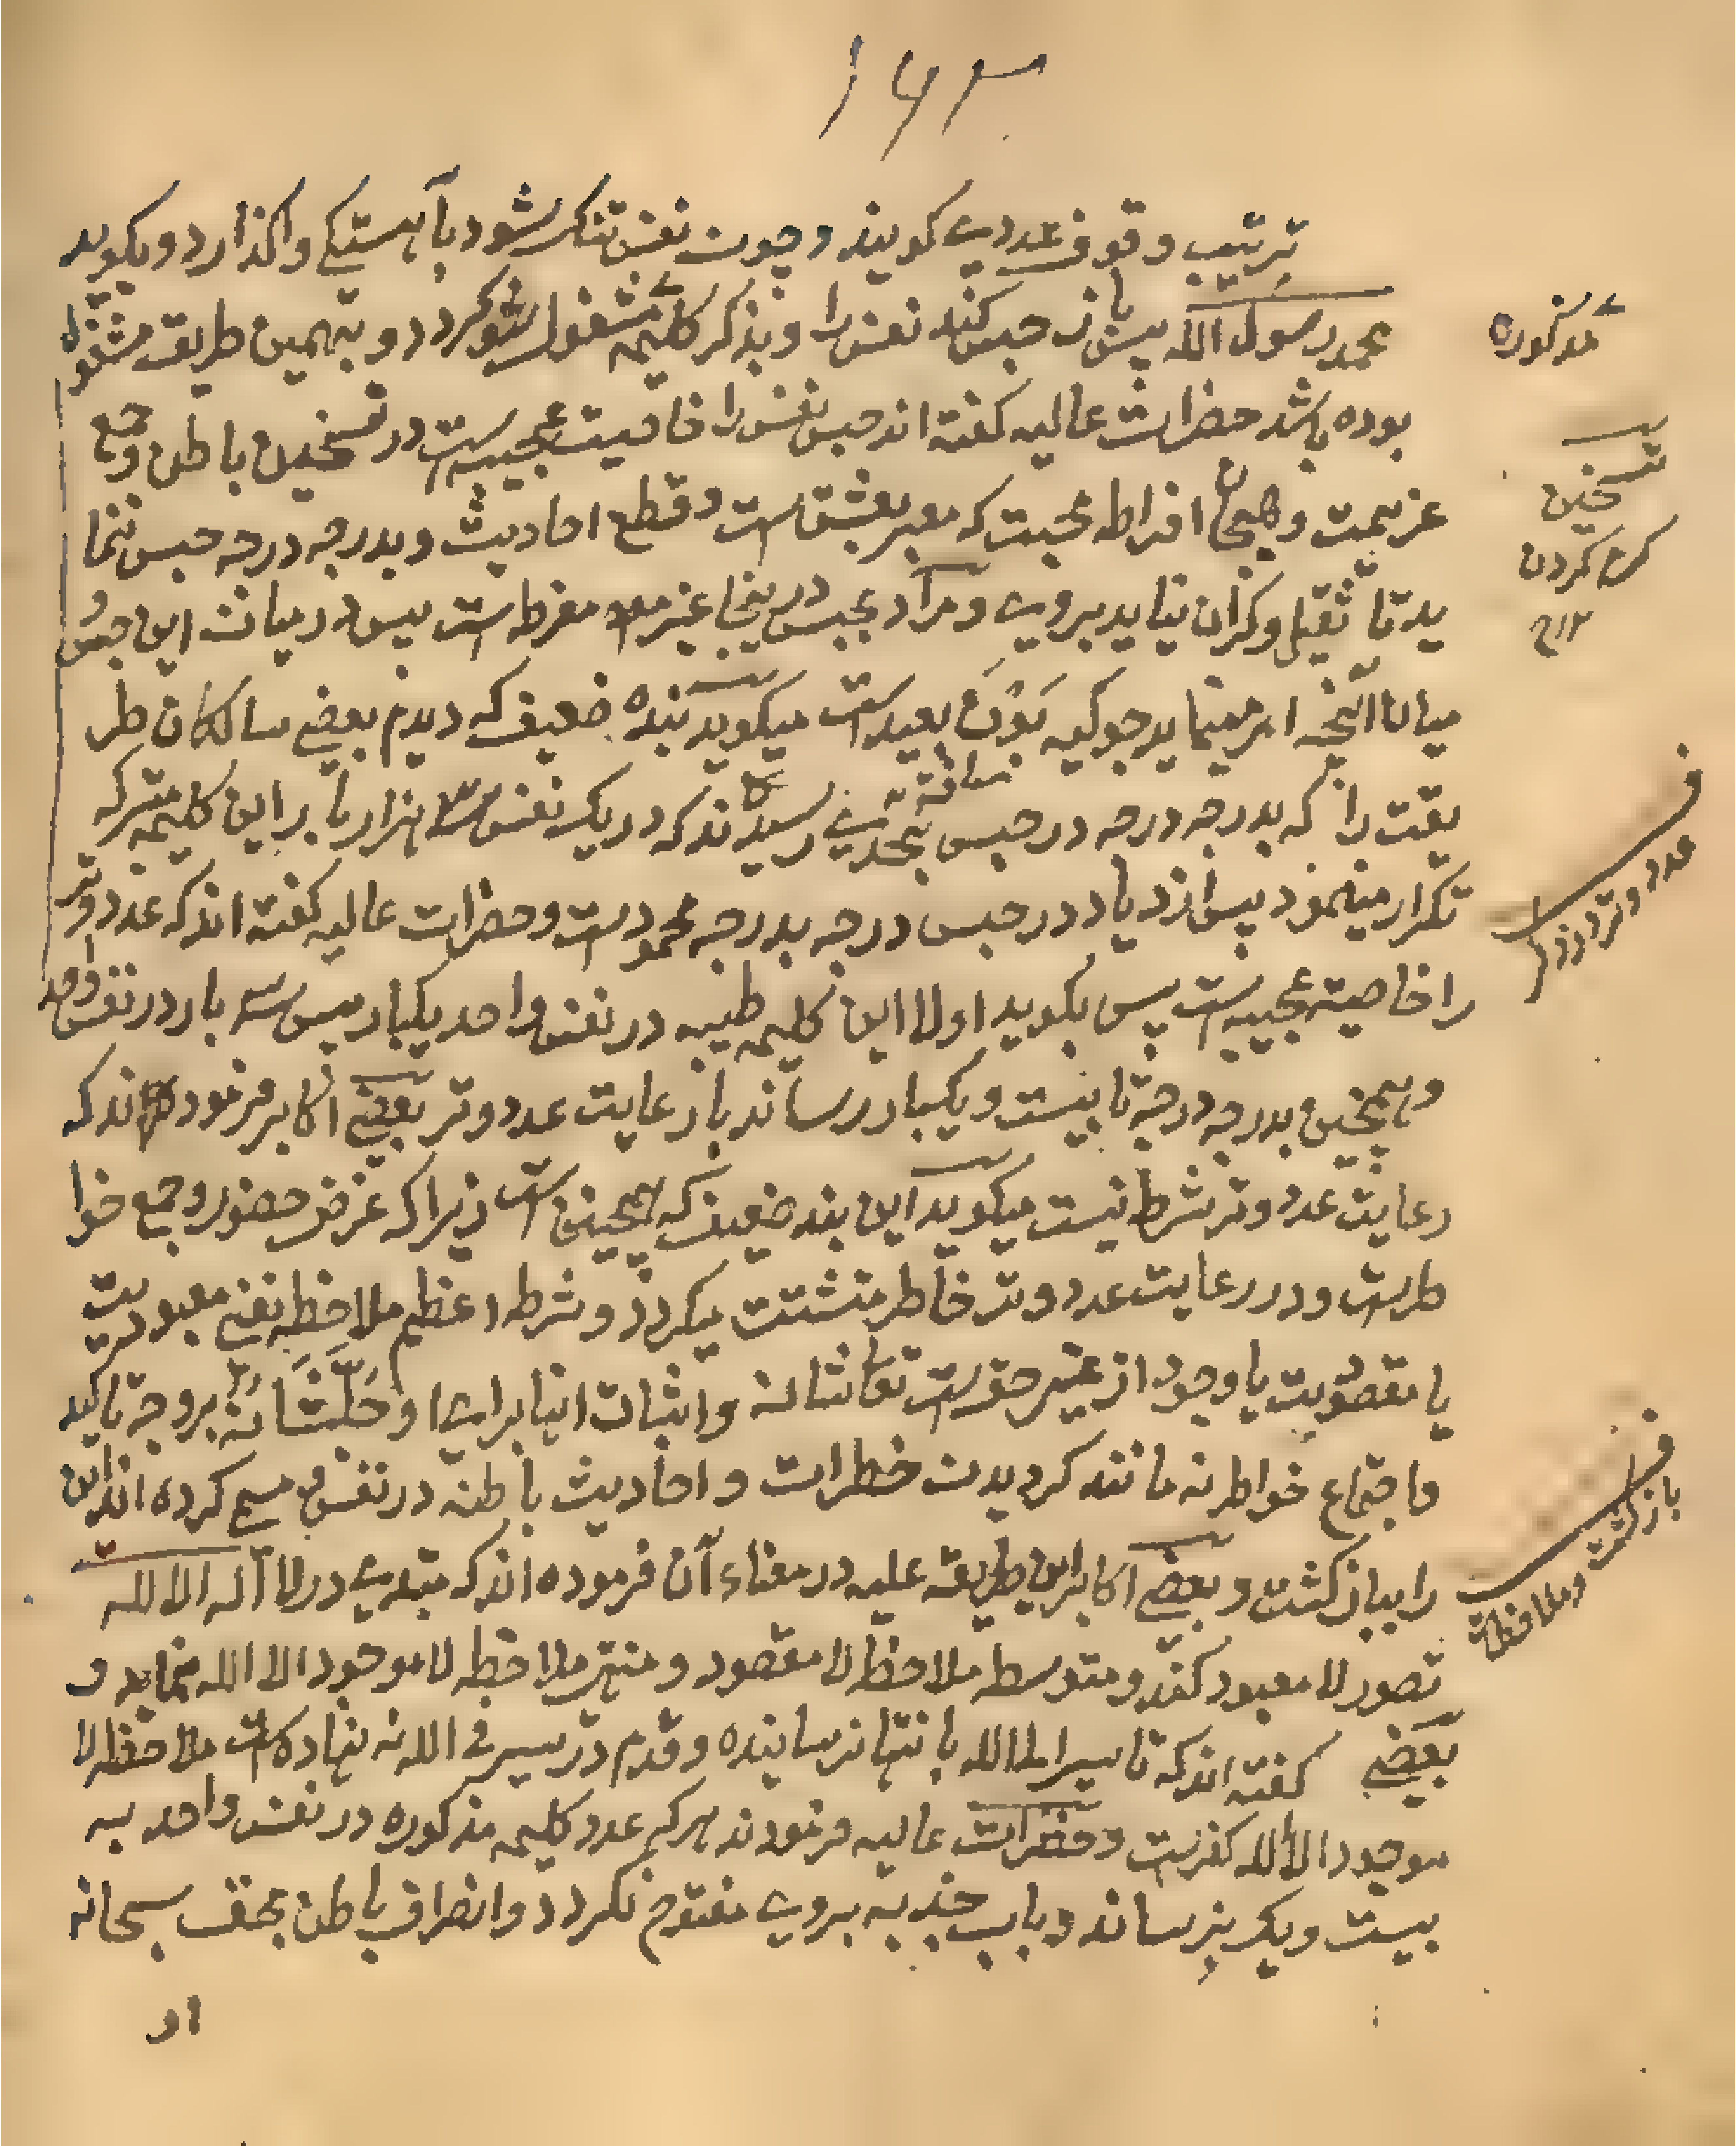 ۱۶۳
ترتیب وقوف عددی کویند و چون نفس تنک شود بآهستکی واکذارد و بکوید
محمد رسول الله پس باز حبس کند نفس را و بذکر کلیمه مشغول شود و بهمین طریق مشغول
مذکوره
بوده باشد حضرات عالیه کفته اند حبس نفس را خاصیت عجیبه است در تسخین باطن و جمع
تسخین
کرم کردن
۱۲
عزیمت و هیجان افراط محبت که معبر بعشق است و قطع احادیث و بدرجه درجه حبس نما
ید تا ثقیل و کران نیاید بروی و مراد بحبس درینجا غیر مفرط است پس درمیان این حبس و
میان آنچه امر مینماید جوکیه بون بعید است میکوید بنده ضعیف که دیدم بعضی سالکان طر
یقت را که بدرجه درجه در حبس بحدی رسیده اند که در یک نفس سه هزار بار این کلیمه متبرکه
تکرار مینمود پس ازدیاد در حبس درجه بدرجه محمود است و حضرات عالیه کفته اند که عدد وتر
ف
عدد وتر در ذکر
را خاصیته عجیبه است پس بکوید اولا این کلیمه طیبه در نفس واحد یکبار پس سه بار در نفس واحد
و همچنین بدرجه درجه تا بیست و یکبار رساند با رعایت عدد وتر بعضی اکابر فرموده اند که
رعایت عدد وتر شرط نیست میکوید این بنده ضعیف که همچنین است زیرا که غرض حضور و جمع خوا
طر است و در رعایت عدد وتر خاطر متشتت میکردد و شرط اعظم ملاحظه نفی معبودیت
یا مقصودیت یا وجود از غیر حق است تعالی شانه و اثبات اینها برای او جل شانه بر وجه تاکید
و اجتماع خواطر نه مانند کردیدن خطرات و احادیث باطنه در نفس و مسمی کرده اند این
را بباز کشت و بعضی اکابر این طریقه علیه در معناء آن فرموده اند که مبتدی در لا اله الا الله
ف
باز کشت و ملاحظه
تصور لا معبود کند و متوسط ملاحظه لا مقصود و منتهی ملاحظه لا موجود الا الله نماید و
بعضی کفته اند که تا سیر الی الله بانتها نرسانیده و قدم در سیر فی الله نه نهاده است ملاحظه لا
موجود الا الله کفر است و حضرات عالیه فرمودند هر کیم عدد کلیمه مذکوره در نفس واحد به
بیست و یک برساند و باب جذبه بروی مفتوح نکردد و انصراف باطن بحق سبحانه
او